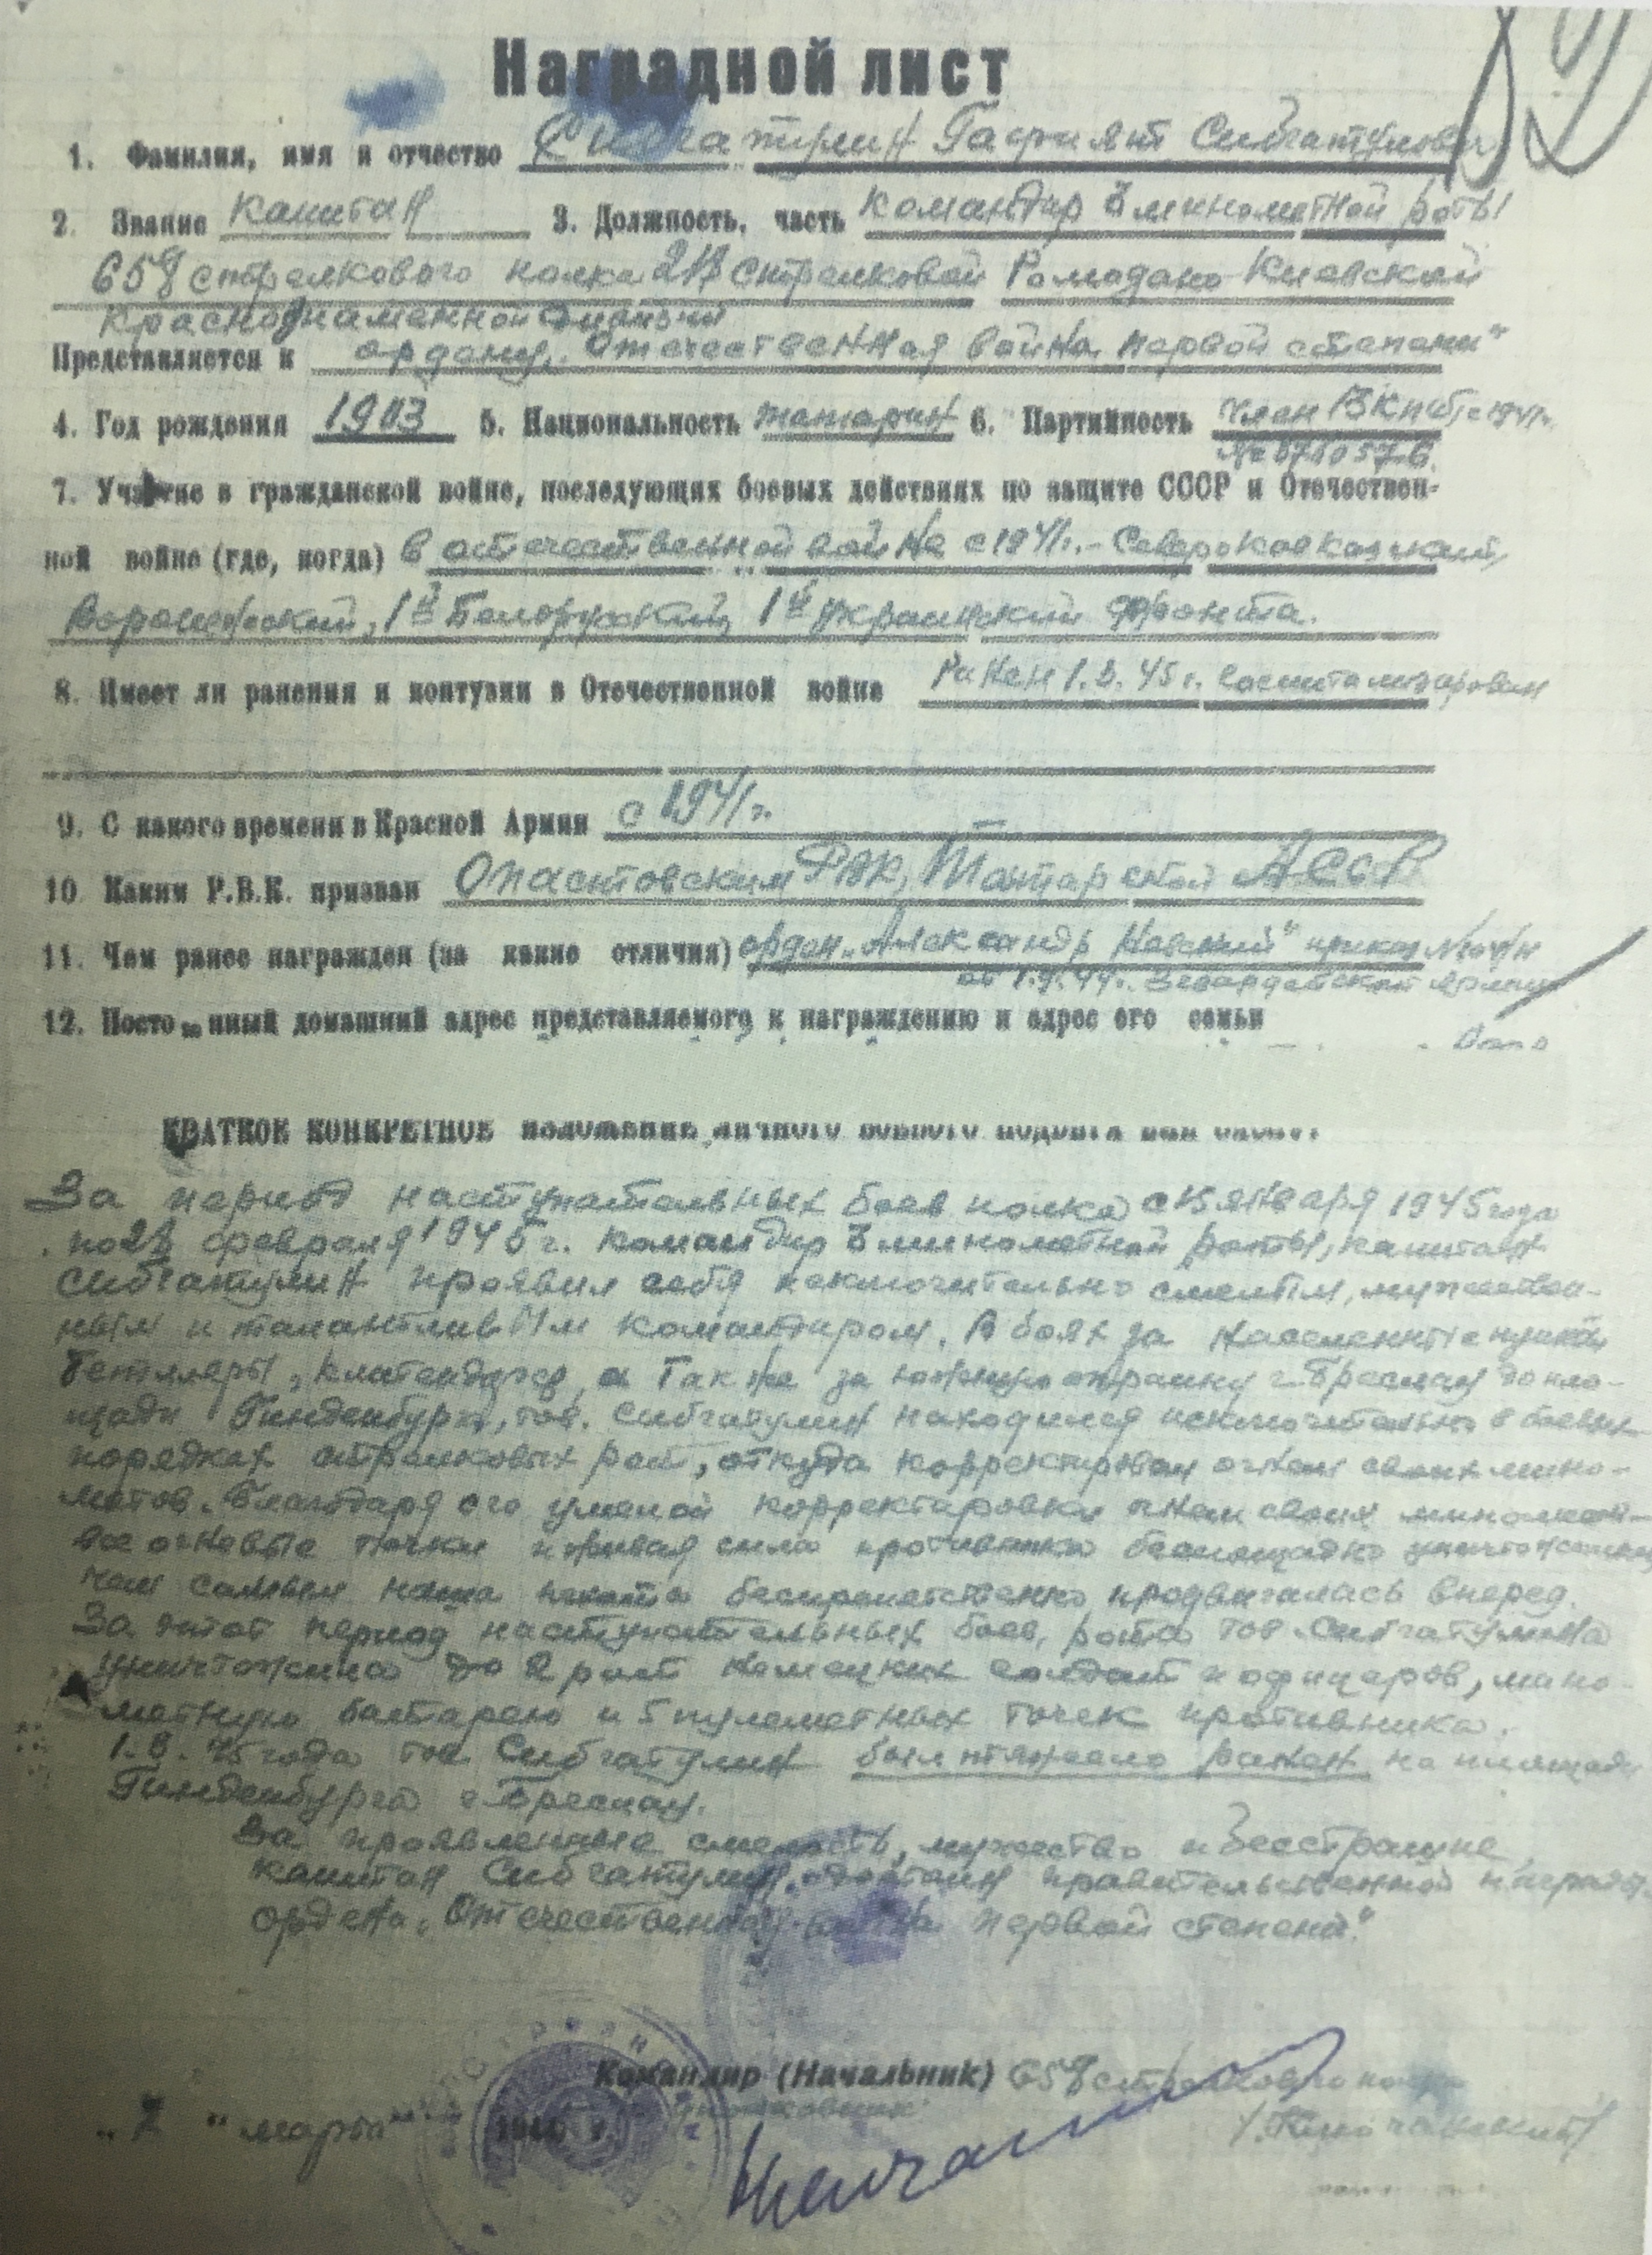 Наградной лист
1. Фамилия, имя и отчество Сибгатулин Гафият Сибгатулович
2. Звание капитан 3. Должность, часть Командир минометной роты
стрелкового полка 218 стрелковой Ромодано-Киевской
Краснознаменной дивизии
Представляется к ордену „Отечественная война первой степени"
4. Год рождения 1903 5. Национальность татарин 6. Партийность член ВКП(б) с 1941г.
7. Участие в гражданской войне, последующих боевых действиях по защите СССР и Отечествен-
ной войне (где, когда) в отечественной войне с 1941г.- Северокавказский,
Воронежский, 1й Белорусский, 1й украинский фронта.
8. Имеет ли ранения и контузии в Отечественной войне Ранен 1.3.45г. госпитализирован
9. С какого времени в Красной Армии с 1941г.
10. Каким Р.В.К. призван РВК, Татарской АССР
11. Чем ранее награжден (за какие отличия) орден „Александр Невский" приказ
от 1.9.44г. 3 гвардейской армии
12. Постоянный домашний адрес представляемого к награждению и адрес его семьи
КРАТКОЕ КОНКРЕТНОЕ
За период наступательных боев полка с 15 января 1945 года
по 28 февраля 1945г. командир 3 минометной роты, капитан
Сибгатулин проявил себя исключительно смелым, мужествен-
ным и талантливым командиром. В боях за населенные пункты
а также за южную окраину г. Бреслау до пло-
щади Гинденбурга, тов. Сибгатулин находился исключительно в боевых
порядках стрелковых рот, откуда корректировал огнем своих мино-
метов. Благодаря его умелой корректировки огнем своих минометов
все огневые точки и живая сила противника беспощадно уничтожались,
тем самым наша пехота беспрепятственно продвигалась вперед.
За этот период наступательных боев, рота тов. Сибгатулина
уничтожила до 2 рот немецких солдат и офицеров, мино-
метную батарею и 5 пулеметных точек противника.
1.3.45 года тов. Сибгатулин был тяжело ранен на площади
Гинденбурга г. Бреслау.
За проявленные смелость, мужество и бесстрашие
капитан Сибгатулин достоин правительственной награды
ордена „Отечественная война первой степени."
Командир (Начальник) стрелкового полка
„7" марта